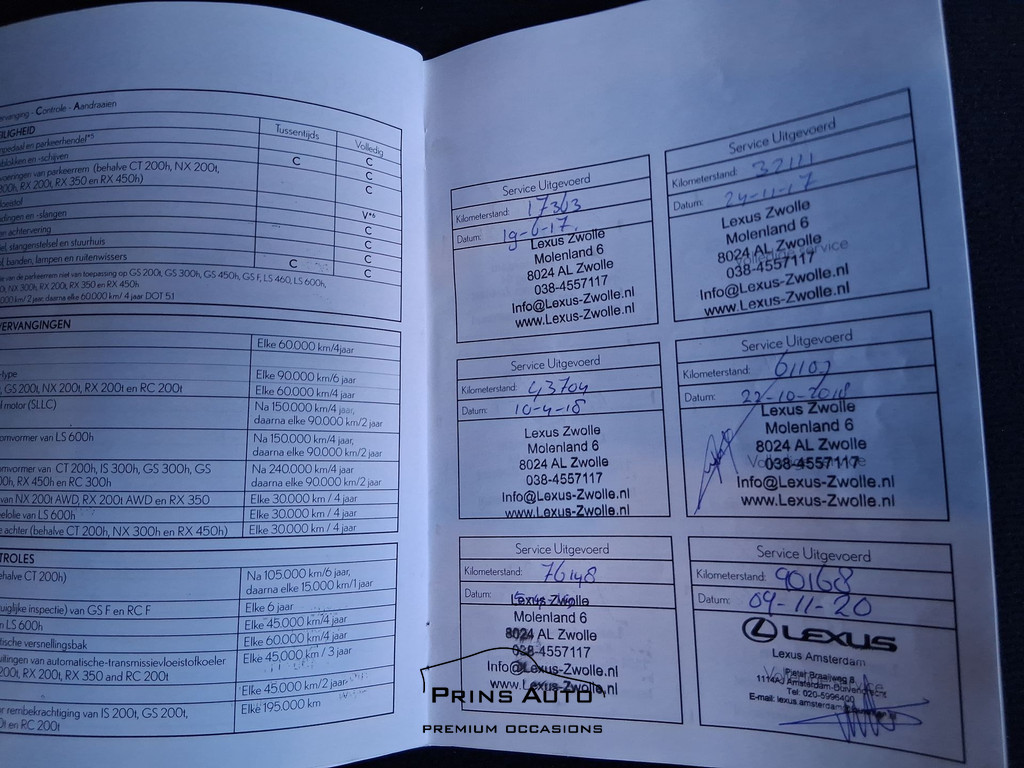 ervanging - Controle - Aandraaien
ILIGHEID
Tussentijds
Volledig
mpedaal en parkeerhendel*5
C
mblokken en -schijven
C
C
voeringen van parkeerrem (behalve CT 200h, NX 200t,
00h, RX 200t, RX 350 en RX 450h)
C
loeistof
V*6
dingen en -slangen
C
en achtervering
C
sel, stangenstelsel en stuurhuis
C
of, banden, lampen en ruitenwissers
C
C
e van de parkeerrem niet van toepassing op GS 200t, GS 300h, GS 450h, GS F, LS 460, LS 600h,
0t, NX 300h, RX 200t, RX 350 en RX 450h
000 km/ 2 jaar, daarna elke 60.000 km/ 4 jaar DOT 5.1
VERVANGINGEN
Elke 60.000 km/4jaar
-type
Elke 90.000 km/6 jaar
, GS 200t, NX 200t, RX 200t en RC 200t
Elke 60.000 km/4 jaar
l motor (SLLC)
Na 150.000 km/4 jaar,
daarna elke 90.000 km/2 jaar
omvormer van LS 600h
Na 150.000 km/4 jaar,
daarna elke 90.000 km/2 jaar
omvormer van CT 200h, IS 300h, GS 300h, GS
0h, RX 450h en RC 300h
Na 240.000 km/4 jaar
daarna elke 90.000 km/2 jaar
van NX 200t AWD, RX 200t AWD en RX 350
Elke 30.000 km / 4 jaar
elolie van LS 600h
Elke 30.000 km / 4 jaar
e achter (behalve CT 200h, NX 300h en RX 450h)
Elke 30.000 km / 4 jaar
TROLES
ehalve CT 200h)
Na 105.000 km/6 jaar,
daarna elke 15.000 km/1 jaar
uiglijke inspectie) van GS F en RC F
Elke 6 jaar
n LS 600h
Elke 45.000 km/4 jaar
tische versnellingsbak
Elke 60.000 km/4 jaar
uilingen van automatische-transmissievloeistofkoeler
200t, RX 200t, RX 350 and RC 200t
Elke 45.000 km / 3 jaar
Elke 45.000 km/2 jaar
or rembekrachtiging van IS 200t, GS 200t,
0t en RC 200t
Elke 195.000 km
Service Uitgevoerd
Kilometerstand: 17363
Datum: 19-6-17.
Lexus Zwolle
Molenland 6
8024 AL Zwolle
038-4557117
Info@Lexus-Zwolle.nl
www.Lexus-Zwolle.nl
Service Uitgevoerd
Kilometerstand: 32111
Datum: 24-11-17
Lexus Zwolle
Molenland 6
8024 AL Zwolle
038-4557117
Info@Lexus-Zwolle.nl
www.Lexus-Zwolle.nl
Service Uitgevoerd
Kilometerstand: 43704
Datum: 10-4-18
Lexus Zwolle
Molenland 6
8024 AL Zwolle
038-4557117
Info@Lexus-Zwolle.nl
www.Lexus-Zwolle.nl
Service Uitgevoerd
Kilometerstand: 61102
Datum: 22-10-2018
Lexus Zwolle
Molenland 6
8024 AL Zwolle
038-4557117
Info@Lexus-Zwolle.nl
www.Lexus-Zwolle.nl
Service Uitgevoerd
Kilometerstand: 76148
Datum:
Lexus Zwolle
Molenland 6
8024 AL Zwolle
038-4557117
Info@Lexus-Zwolle.nl
www.Lexus-Zwolle.nl
Service Uitgevoerd
Kilometerstand: 90168
Datum: 09-11-20
LEXUS
Lexus Amsterdam
Pieter Braaijweg 8
Tel: 020-5996400
PRINS AUTO
PREMIUM OCCASIONS